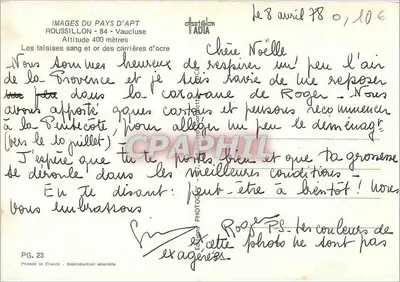 IMAGES DU PAYS D'APT
ROUSSILLON - 84 - Vaucluse
Altitude 400 mètres
Les falaises sang et or des carrières d'ocre
Le 8 avril 78
0,10€
Chère Noëlle
- Nous sommes heureux de respirer un peu l'air
de la Provence et je suis ravie de me reposer
dans la caravane de Roger - Nous
avons apporté qques cartons et pensons recommencer
à la Pentecôte, pour alléger un peu le déménagt
(vers le 10 juillet)
- J'espère que tu te portes bien et que ta grossesse
se déroule dans les meilleures conditions -
En te disant : peut-être à bientôt ! Nous
vous embrassons
Roger
PS - Les couleurs de
cette photo ne sont pas
exagérées
CPAPHIL
PG. 23
Printed in France - Reproduction interdite